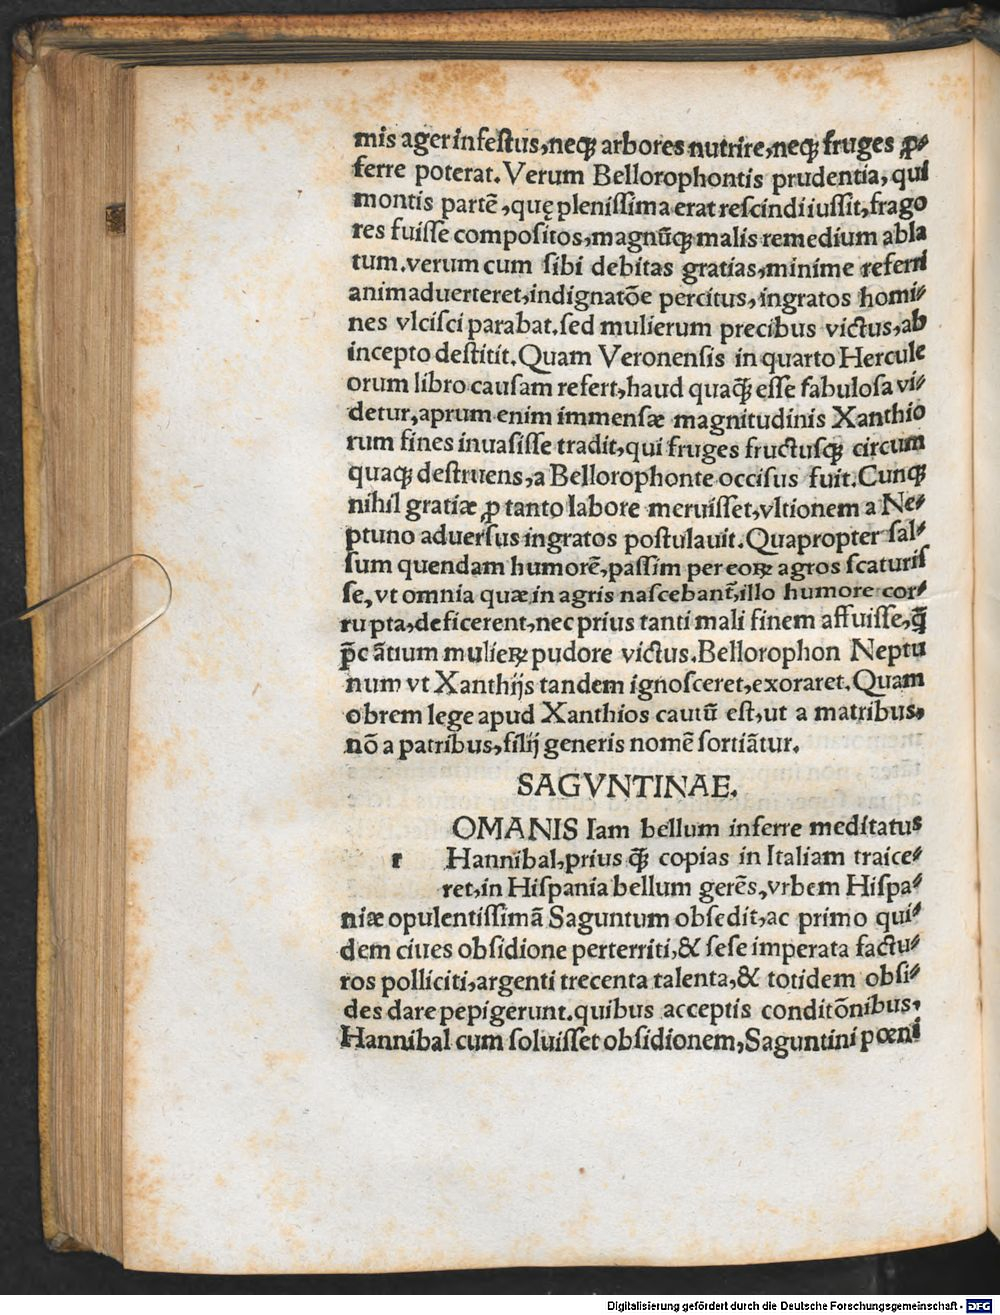 mis ager infestus,neqꝫ arbores nutrire,neqꝫ fruges ꝓ⸗
ferre poterat.Verum Bellorophontis prudentia,qui
montis partē,quę plenissima erat rescindi iussit,frago
res fuisse compositos,magnūqꝫ malis remedium abla
tum.verum cum sibi debitas gratias,minime referri
animaduerteret,indignatōe percitus,ingratos homi⸗
nes vlcisci parabat.sed mulierum precibus victus,ab
incepto destitit.Quam Veronensis in quarto Hercule
orum libro causam refert,haud quaqꝫ̄ esse fabulosa vi⸗
detur,aprum enim immensæ magnitudinis Xanthio
rum fines inuasisse tradit,qui fruges fructusqꝫ circum
quaqꝫ destruens,a Bellorophonte occisus fuit.Cunqꝫ
nihil gratiæ ꝓ tanto labore meruisset,vltionem a Ne⸗
ptuno aduersus ingratos postulauit.Quapropter sal⸗
sum quendam humorē,passim per eoꝝ agros scaturis
se,vt omnia quæ in agris nascebant᷑,illo humore cor⸗
rupta,deficerent,nec prius tanti mali finem affuisse,q̄ꝫ
p̄c ātium mulieꝝ pudore victus.Bellorophon Neptu
num vt Xanthijs tandem ignosceret,exoraret.Quam
obrem lege apud Xanthios cautū est,ut a matribus,
nō a patribus,filij generis nomē sortiātur.
SAGVNTINAE.
OMANIS Iam bellum inferre meditatus
r Hannibal,prius qꝫ̄ copias in Italiam traice⸗
ret,in Hispania bellum gerēs,vrbem Hispa⸗
niæ opulentissimā Saguntum obsedit,ac primo qui⸗
dem ciues obsidione perterriti,& sese imperata factu⸗
ros polliciti,argenti trecenta talenta,& totidem obsi⸗
des dare pepigerunt.quibus acceptis conditōnibus,
Hannibal cum soluisset obsidionem,Saguntini pœni
Digitalisierung gefördert durch die Deutsche Forschungsgemeinschaft - DFG